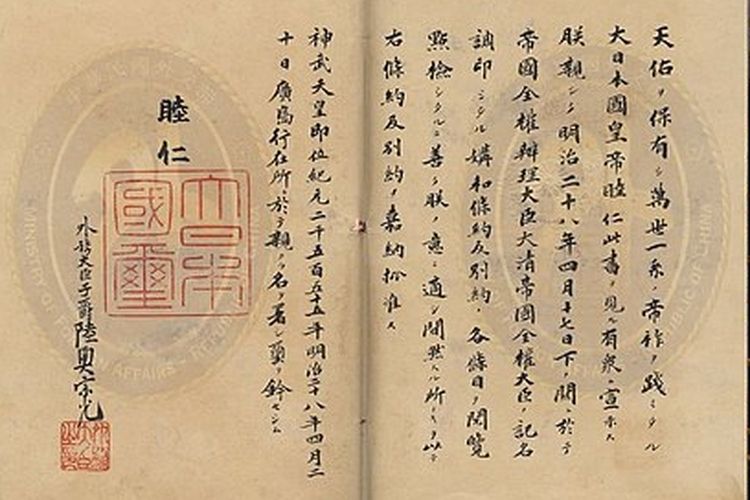 天佑ヲ保有シ萬世一系ノ帝祚ヲ踐ミタル
大日本國皇帝睦仁此書ヲ見ル有衆ニ宣示ス
朕親シク明治二十八年四月十七日下ノ關ニ於テ
帝國全權辨理大臣大清帝國全權大臣ノ記名
調印シタル媾和條約及別約ノ各條目ヲ閲覽
點檢シタルニ善ク朕ノ意ニ適シ間然スル所ナキヲ以テ
右條約及別約ヲ嘉納批准ス
神武天皇即位紀元二千五百五十五年明治二十八年四月二
十日廣島行在所ニ於テ親ラ名ヲ署シ璽ヲ鈐セシム
睦仁
大日本
國璽
外務大臣子爵陸奧宗光